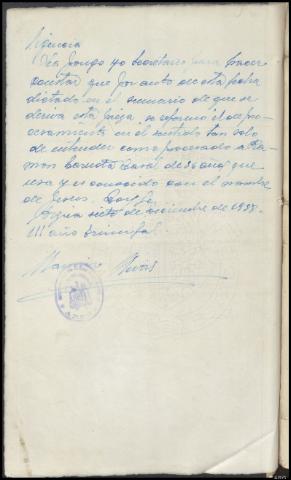 Diligencia
La pongo yo Secretario para hacer
constar que por auto de esta fecha
dictado en el sumario de que se
deriva esta pieza, se reformó el de pro-
cesamiento en el sentido tan solo
de entender como procesado a Ra-
mon de 36 años que
usa y es conocido con el nombre
de Doy fe.
siete de diciembre de 1938.
III año triunfal.